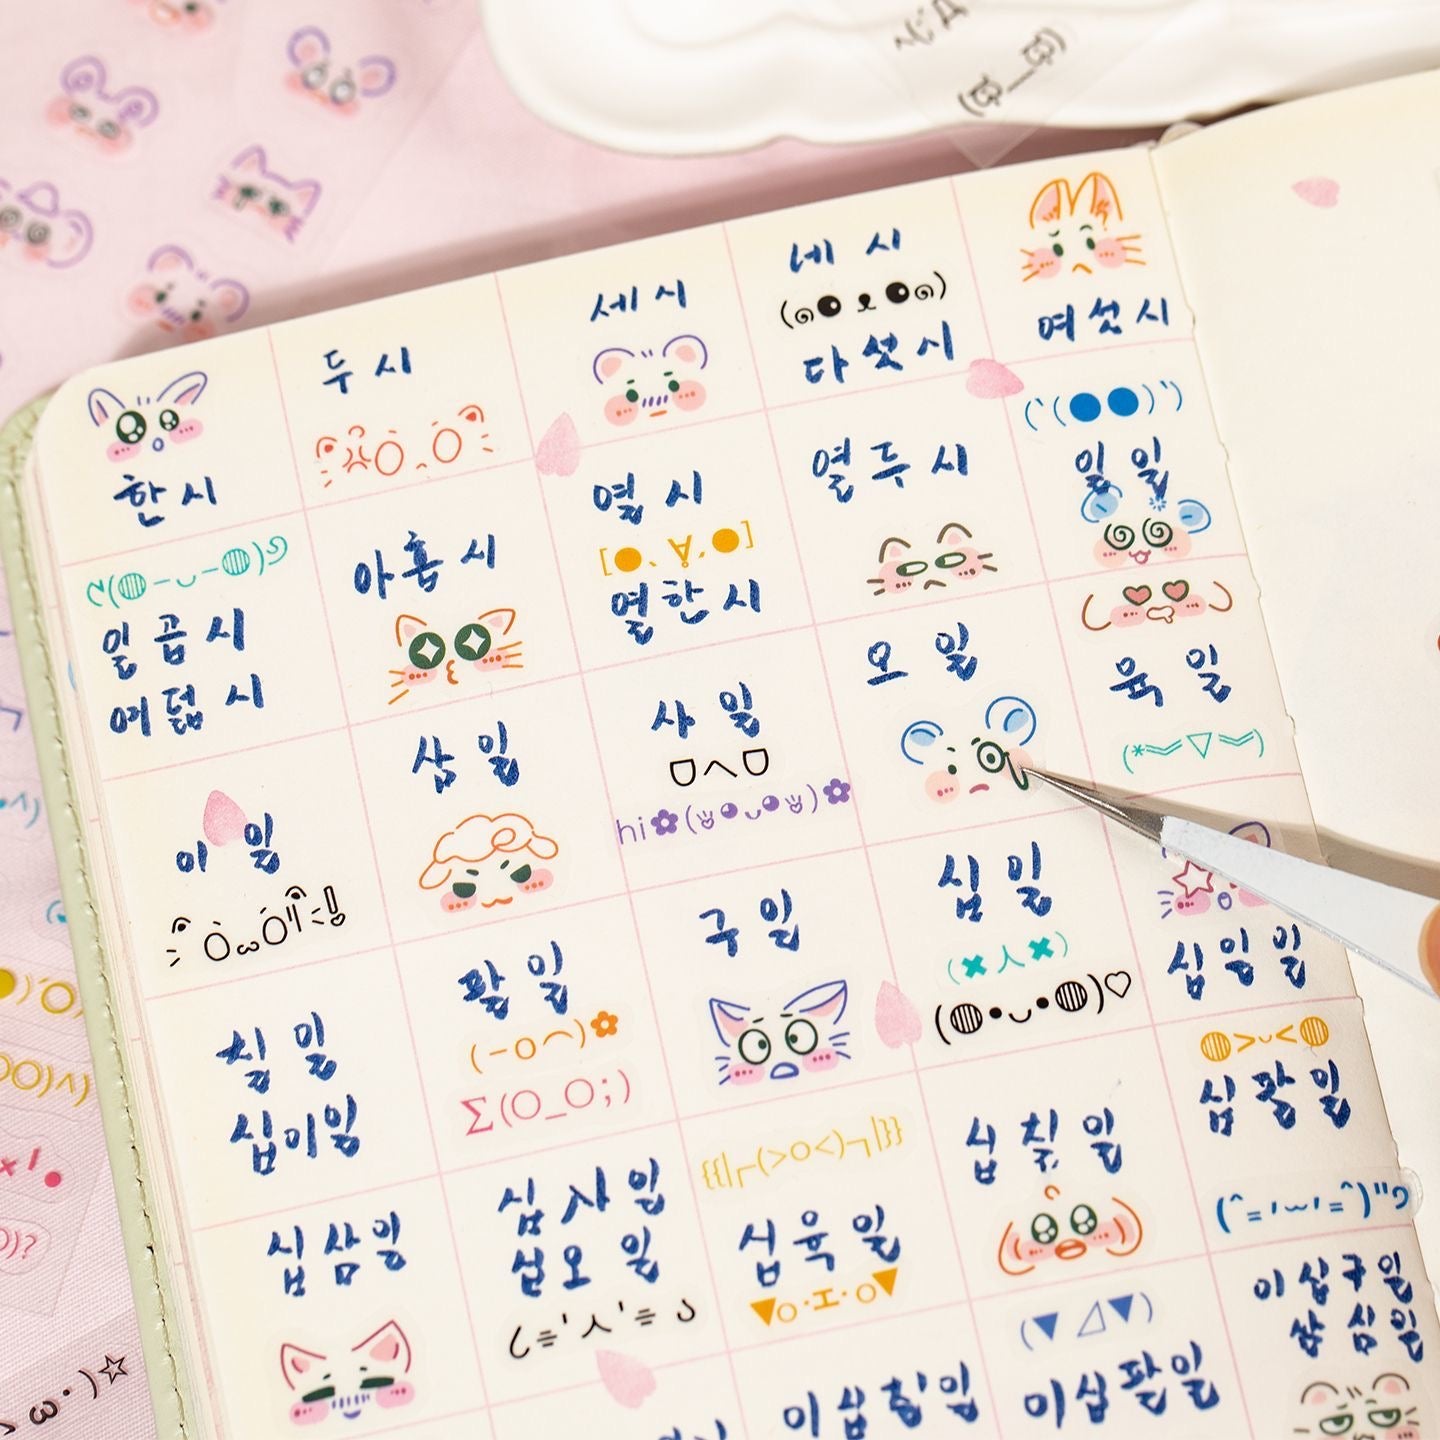 한시
두시
세시
네 시
다섯시
여섯시
일곱시
여덟 시
아홉 시
열 시
열한시
열두시
일 일
이 일
삼 일
사 일
hi
오 일
육 일
칠 일
십이일
팔 일
구 일
십 일
십일일
십삼일
십사일
십오 일
십육 일
십칠 일
십팔일
이십칠일
이십팔일
이십구일
삼십일